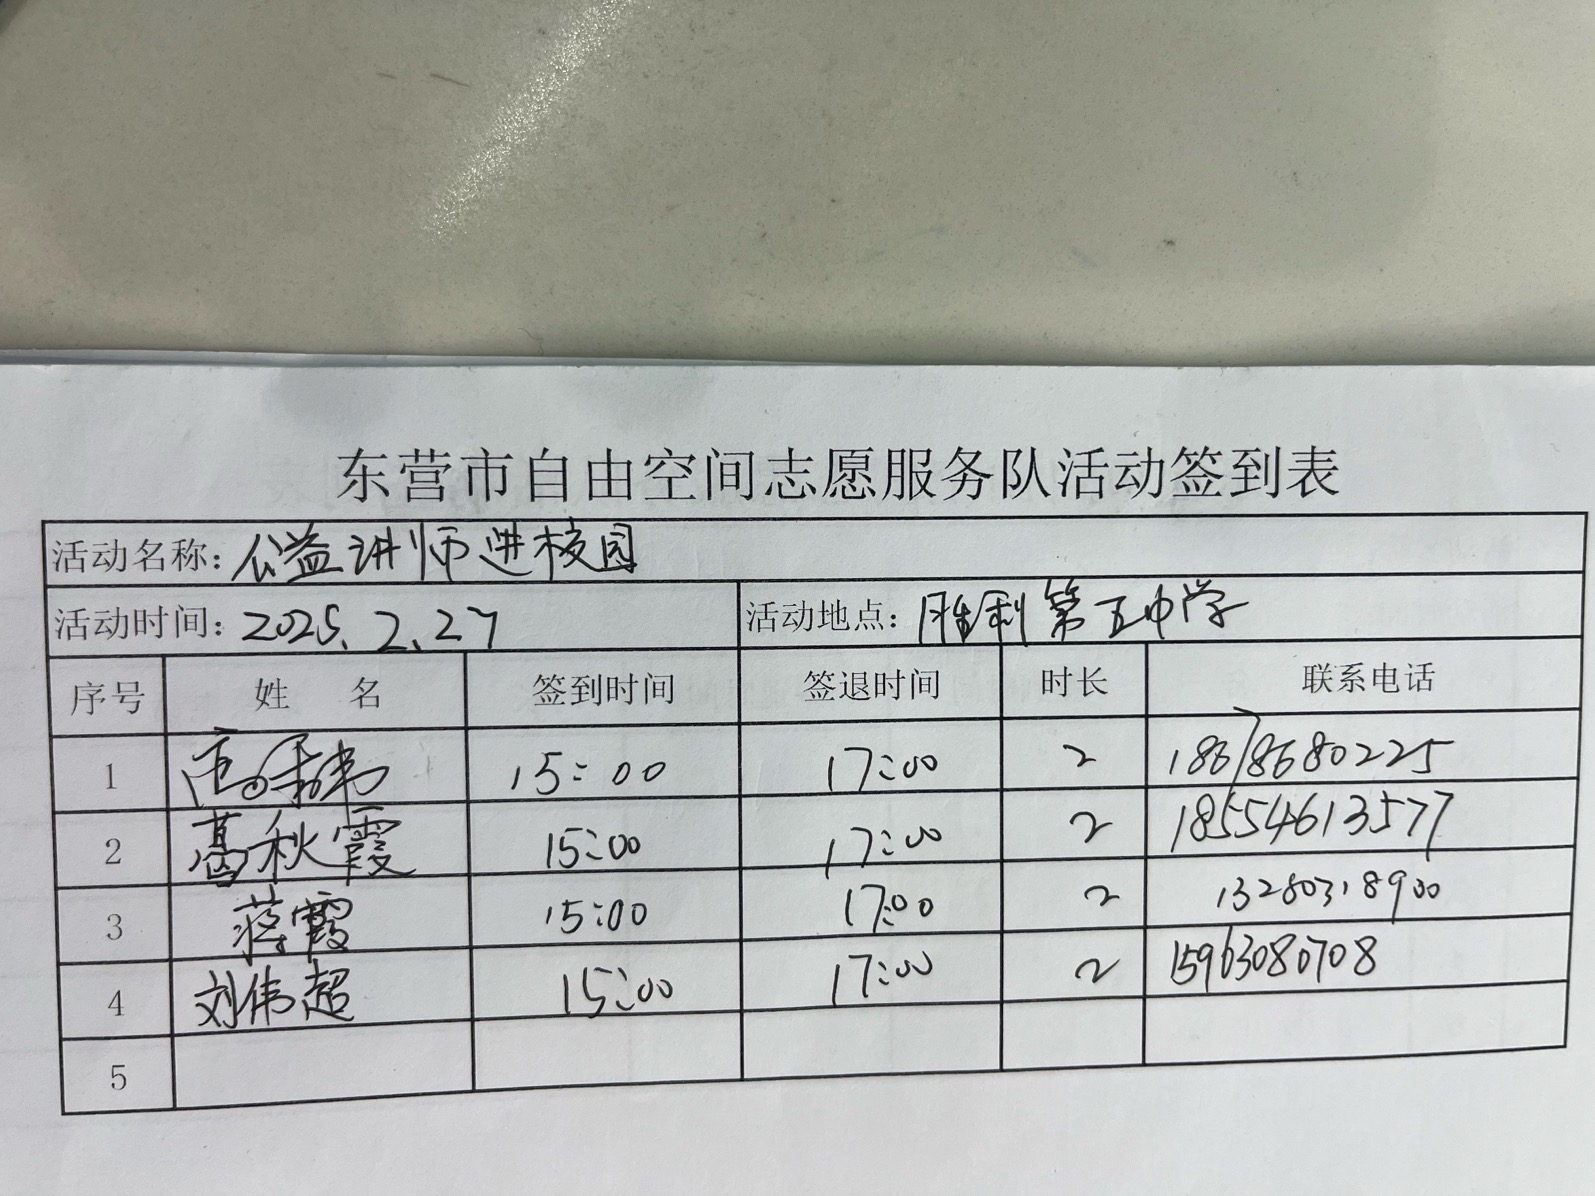 东营市自由空间志愿服务队活动签到表
活动名称：公益讲师进校园
活动时间：2025.2.27 活动地点：胜利第五中学
序号 姓 名 签到时间 签退时间 时长 联系电话
1 15:00 17:00 2 18678680225
2 葛秋霞 15:00 17:00 2 18554613577
3 蒋霞 15:00 17:00 2 13280318900
4 刘伟超 15:00 17:00 2 15963080708
5